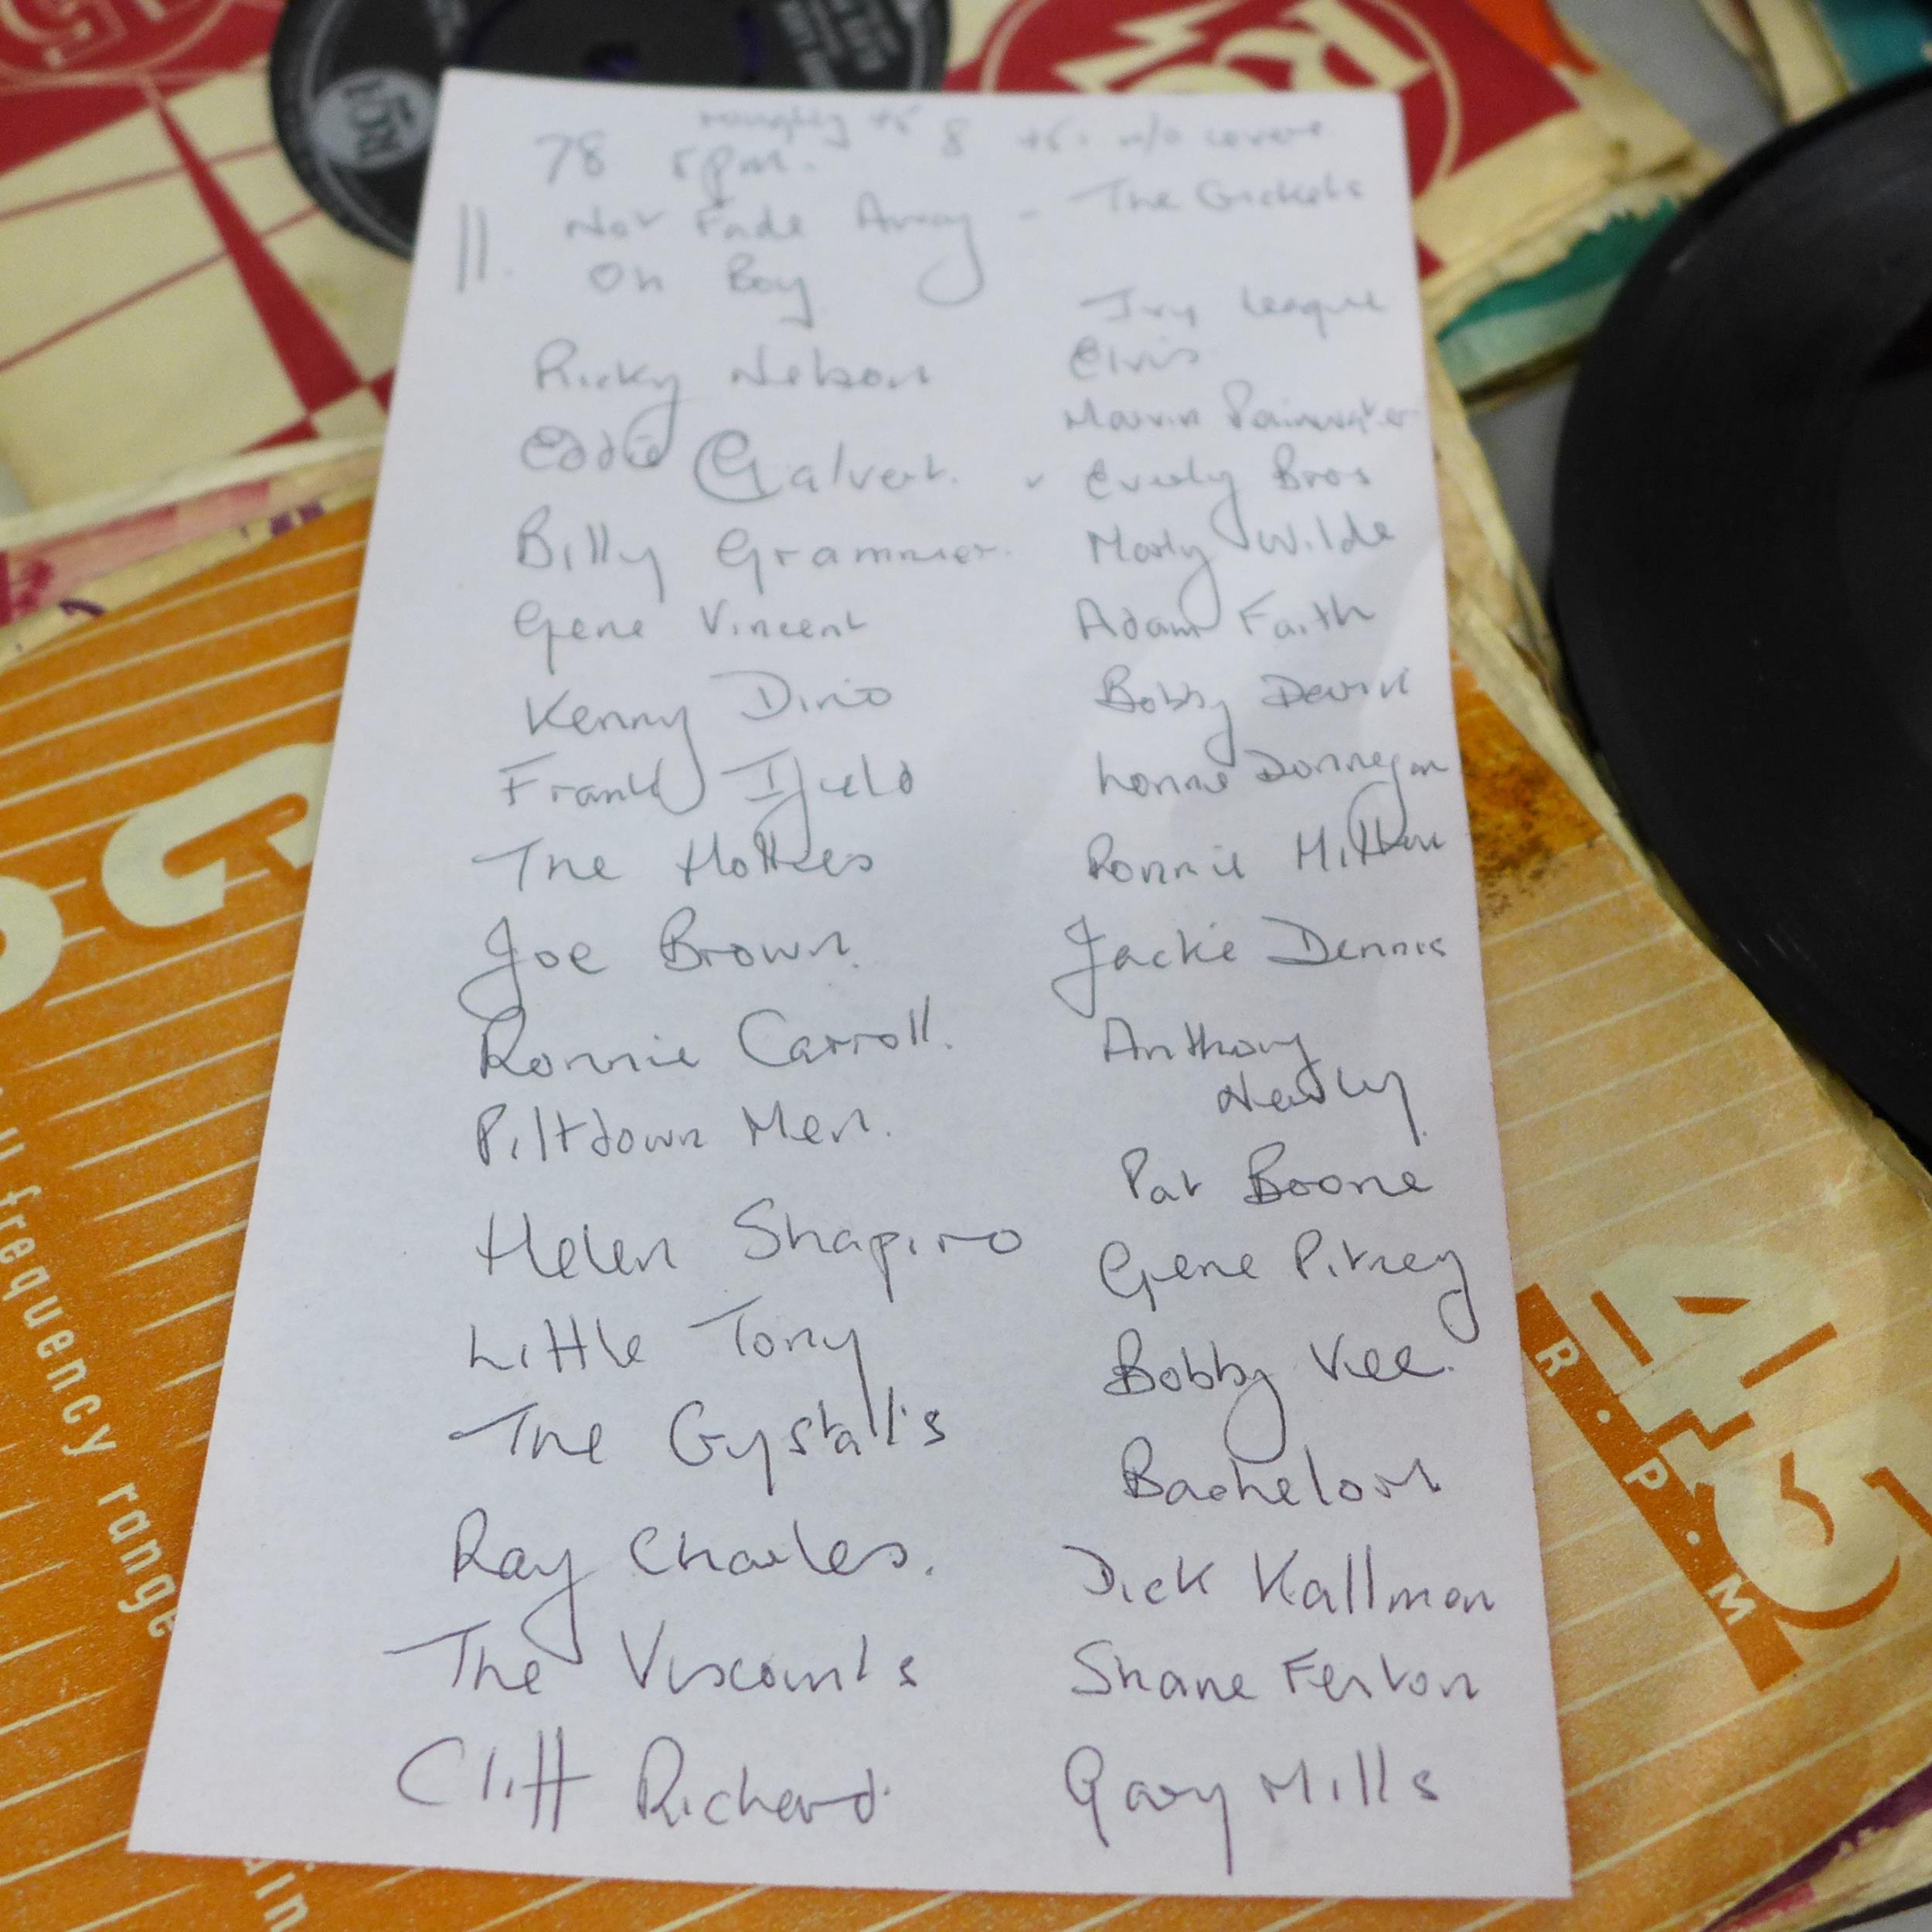 roughly 45
78 rpm. 8 45s w/o covers
11. Not Fade Away - The Crickets
Oh Boy
Ricky Nelson
Eddie Calvert.
Billy Grammer.
Gene Vincent
Kenny Dino
Frank Ifield
The Hollies
Joe Brown.
Ronnie Carroll.
Piltdown Men.
Helen Shapiro
Little Tony
The Crystalls
Ray Charles.
The Viscounts
Cliff Richard.
Ivy League
Elvis
Marvin Rainwater
Everly Bros
Marty Wilde
Adam Faith
Bobby Darin
Lonnie Donnegan
Ronnie Hilton
Jackie Dennis
Anthony
Newley.
Pat Boone
Gene Pitney
Bobby Vee.
Bachelors
Dick Kallman
Shane Fenton
Gary Mills
frequency range
45
R.P.M